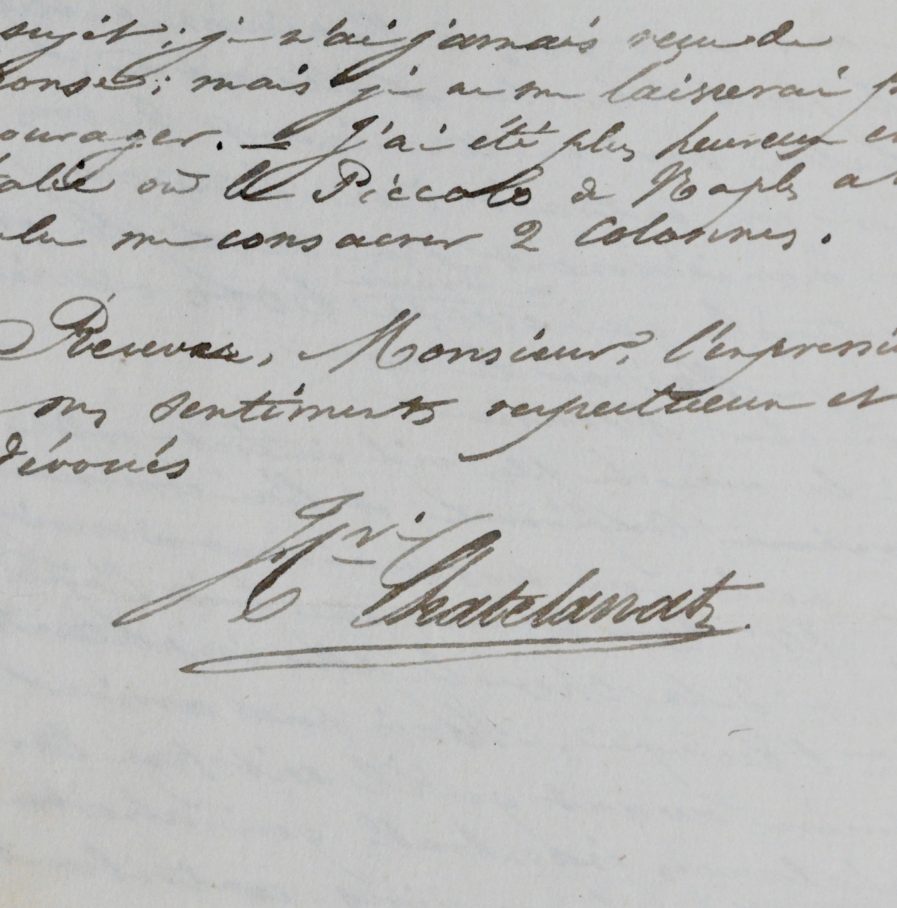 sujet; je n'ai jamais reçu de
ponse; mais je ne me laisserai p
ourager. — J'ai été plus heureux en
talie où le Piccolo de Naples a
ulu me consacrer 2 colonnes.
Recevez, Monsieur, l'expressi
mes sentiments respectueux et
dévoués
Hri Chatelanat